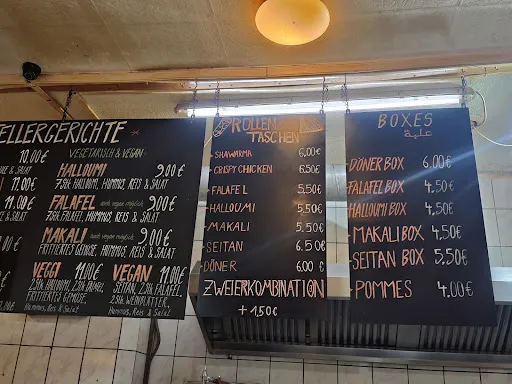 ELLERGERICHTE
VEGETARISCH & VEGAN
10.00€
& SALAT
11.00
11.00€
& SALAT
HALLOUMI 9,00€
7 STK. HALLOUMI, HUMMUS, REIS & SALAT
FALAFEL auch vegan möglich 9,00€
7 STK. FALAFEL, HUMMUS, REIS & SALAT
MAKALI auch vegan möglich 9,00€
FRITTIERTES GEMÜSE, HUMMUS, REIS & SALAT
VEGGI 11.00€
2 STK. HALLOUMI, 2 STK. FALAFEL
FRITTIERTES GEMÜSE,
HUMMUS, REIS & SALAT
VEGAN 11.00€
SEITAN, 2 STK. FALAFEL,
2 STK. WEINBLÄTTER,
HUMMUS, REIS & SALAT
ROLLEN
TASCHEN
SHAWARMA 6,00€
CRISPY CHICKEN 6,50€
FALAFEL 5,50€
HALLOUMI 5,50€
MAKALI 5,50€
SEITAN 6.50€
DÖNER 6.00€
ZWEIERKOMBINATION
+ 1,50€
BOXES
علبة
DÖNER BOX 6,00€
FALAFEL BOX 4,50€
HALLOUMI BOX 4,50€
MAKALI BOX 4,50€
SEITAN BOX 5,50€
POMMES 4.00€